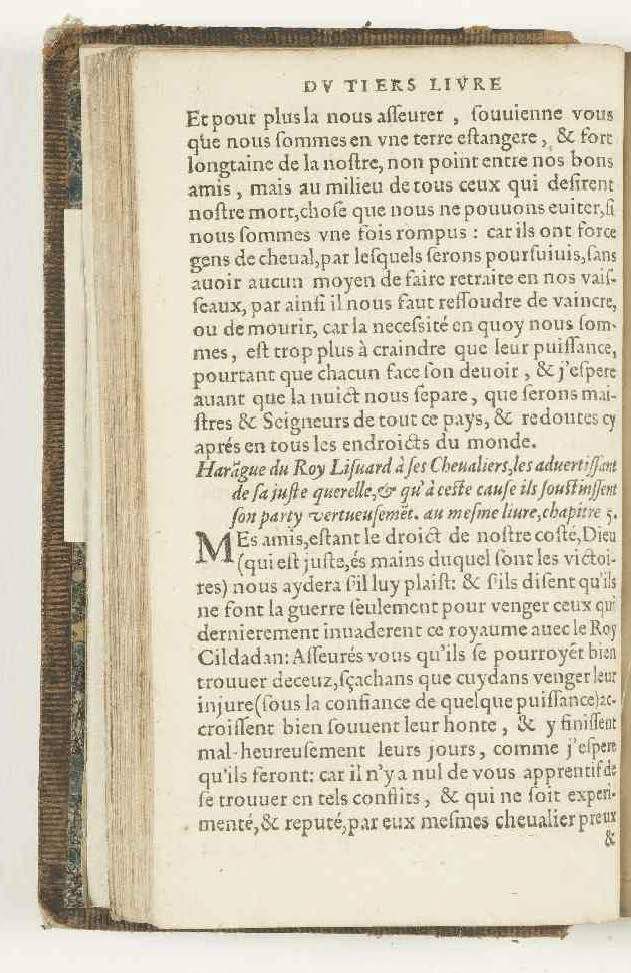 DV TIERS LIVRE
Et pour plus la nous aſſeurer , ſouuienne vous
que nous ſommes en vne terre eſtangere , & fort
longtaine de la noſtre, non point entre nos bons
amis , mais au milieu de tous ceux qui deſirent
noſtre mort,choſe que nous ne pouuons euiter,ſi
nous ſommes vne fois rompus : car ils ont force
gens de cheual,par leſquels ſerons pourſuiuis,ſans
auoir aucun moyen de faire retraite en nos vaiſ-
ſeaux, par ainſi il nous faut reſſoudre de vaincre,
ou de mourir, car la neceſſité en quoy nous ſom-
mes , eſt trop plus à craindre que leur puiſſance,
pourtant que chacun face ſon deuoir , & j'eſpere
auant que la nuict nous ſepare , que ſerons mai-
ſtres & Seigneurs de tout ce pays, & redoutes cy
aprés en tous les endroicts du monde.
Harãgue du Roy Liſuard à ſes Cheualiers,les aduertiſſant
de ſa juſte querelle,& qu'à ceſte cauſe ils ſouſtinſſent
ſon party vertueuſemẽt. au meſme liure,chapitre 5.
MEs amis,eſtant le droict de noſtre coſté,Dieu
(qui eſt juſte,és mains duquel ſont les victoi-
res) nous aydera ſ'il luy plaiſt: & ſ'ils diſent qu'ils
ne font la guerre ſeulement pour venger ceux qui
dernierement inuaderent ce royaume auec le Roy
Cildadan: Aſſeurés vous qu'ils ſe pourroyẽt bien
trouuer deceuz,ſçachans que cuydans venger leur
injure(ſous la confiance de quelque puiſſance)ac-
croiſſent bien ſouuent leur honte , & y finiſſent
mal-heureuſement leurs jours , comme j'eſpere
qu'ils feront: car il n'y a nul de vous apprentif de
ſe trouuer en tels conflits , & qui ne ſoit experi-
menté,& reputé,par eux meſmes cheualier preux
&